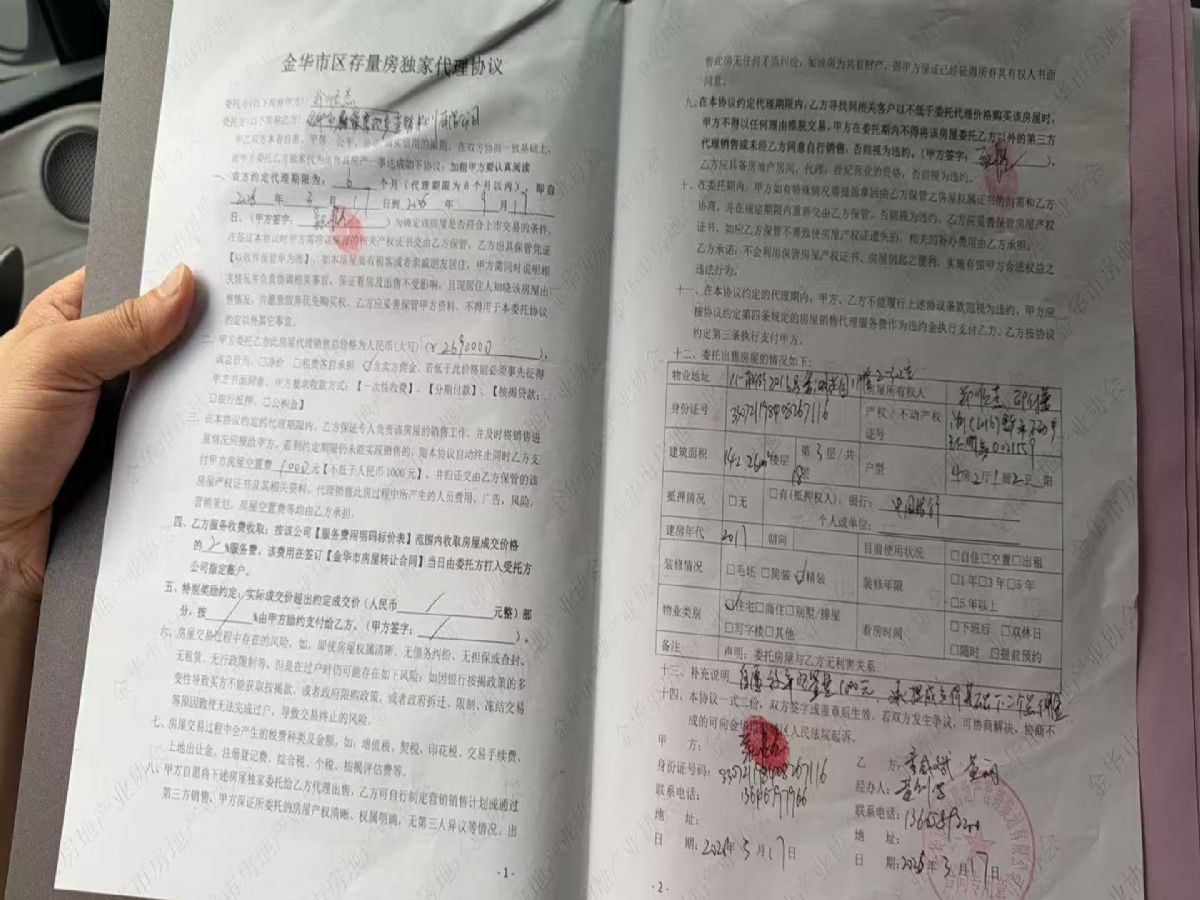 金华市区存量房独家代理协议
委托方(以下简称甲方):
受托方(以下简称乙方):
甲乙双方本着自愿、平等、公平、诚实信用的原则，在双方协商一致基础上，
就甲方委托乙方独家代为出售其房产一事达成如下协议，加粗甲方要认真阅读
一、双方约定代理期限为： 6 个月（代理期限为6个月以内），即自
年 3 月 17 日到 年 9 月 17
日。（甲方签字： ）为确定该房屋是否符合上市交易的条件，
在签订本协议时甲方需将该房屋的相关产权证书交由乙方保管，乙方出具保管凭证
【以收件保管单为准】，如本房屋面有租客或者亲戚朋友居住，甲方需同时说明相
关情况并负责协调相关事宜，保证看房及出售不受影响，且现居住人知晓该房屋出
售情况，并愿意放弃优先购买权。乙方应妥善保管甲方资料，不得用于本委托协议
约定以外其它事宜。
二、甲方委托乙方此房屋代理销售总价格为人民币(大写)（￥2690000 ）。
该总价为：□净价 □税费各自承担 ☑含卖方佣金，若低于此价格则必须事先征得
甲方书面同意。甲方要求收款方式：【一次性收费】、【分期付款】、【按揭贷款：
□银行抵押、□公积金】
三、在本协议约定的代理期限内，乙方保证专人负责该房屋的销售工作，并及时将销售进
展情况回报给甲方。若到约定期限仍未能实现销售的，则本协议自动终止同时乙方支
付甲方房屋空置费 1000 元【不低于人民币1000元】，并归还交由乙方保管的该
房屋产权证书及其相关资料，代理销售此房过程中所产生的人员费用、广告，风险，
营销策划，房屋空置费等均由乙方承担。
四、乙方服务收费收取：按该公司【服务费用明码标价表】范围内收取房屋成交价格
的 2 %服务费，该费用在签订【金华市房屋转让合同】当日由委托方打入受托方
公司指定账户。
五、特别奖励约定：实际成交价超出约定成交价（人民币 / 元整）部
分，按 / %由甲方励约支付给乙方。（甲方签字： / ）。
六、房屋交易过程中存在的风险，如，即使房屋权属清晰、无债务纠纷、无担保或查封、
无租赁，无行政限制等，但是在过户时仍可能存在如下风险：如因银行按揭政策的多
变性导致买方不能获取按揭款，或者政府限购政策，或者政府拆迁、限制、冻结交易
等原因致使无法完成过户，导致交易终止的风险。
七、房屋交易过程中会产生的税费种类及金额，如：增值税，契税，印花税，交易手续费，
土地出让金，注册登记费，综合税，个税，按揭评估费等。
八、甲方自愿将下述房屋独家委托给乙方代理出售，乙方可自行制定营销销售计划或通过
第三方销售，甲方保证所委托的房屋产权清晰、权属明确，无第三人异议等情况，出
- 1 -
售此房无任何矛盾纠纷，如该房为共有财产，则甲方保证已经征得所有共有权人书面
同意。
九、在本协议约定代理期限内，乙方寻找到相关客户以不低于委托代理价格购买该房屋时，
甲方不得以任何理由推脱交易。甲方在委托期内不得将该房屋委托乙方以外的第三方
代理销售或未经乙方同意自行销售，否则视为违约。（甲方签字： ）。
乙方应具备房地产居间，代理，经纪营业的资格，否则视为违约。
十、在委托期内，甲方如有特殊情况需提前拿回由乙方保管之房屋权属证书的则需和乙方
协商，并在规定期限内重新交由乙方保管，否则视为违约。乙方应妥善保管房屋产权
证书，如应乙方保管不善致使房屋产权证遗失的，相关的补办费用由乙方承担。
乙方承诺：不会利用保管房屋产权证书、房屋钥匙之便利，实施有损甲方合法权益之
违法行为。
十一、在本协议约定的代理期内，甲方、乙方不能履行上述协议条款则视为违约，甲方应
按协议约定第四条规定的房屋销售代理服务费作为违约金执行支付乙方。乙方按协议
约定第三条执行支付甲方。
十二、委托出售房屋的情况如下：
物业地址 房屋所有权人
身份证号 产权/不动产权证号
建筑面积 142.26m² 楼层 第 3 层/共 层 户型 4房2厅1厨2卫 阳
抵押情况 □无 □有(抵押权人)：银行：中国银行
个人或单位：
建房年代 2017 朝向 目前使用状况 □自住□空置□出租
装修情况 □毛坯 □简装 ☑精装 装修年限 □1年□3年□5年
□5年以上
物业类别 ☑住宅□商住□别墅/排屋
□写字楼□其他 看房时间 □下班后 □双休日
□随时 □提前预约
备注 声明：委托房屋与乙方无利害关系
十三、补充说明
十四、本协议一式二份，双方签字或盖章后生效。若双方发生争议，可协商解决，协商不
成的可向金华市 区人民法院起诉。
甲 方：
乙 方：
身份证号码：
经办人：
联系电话：
联系电话：
地 址：
地 址：
日 期： 年 3 月 17 日
日 期： 年 3 月 17 日
- 2 -